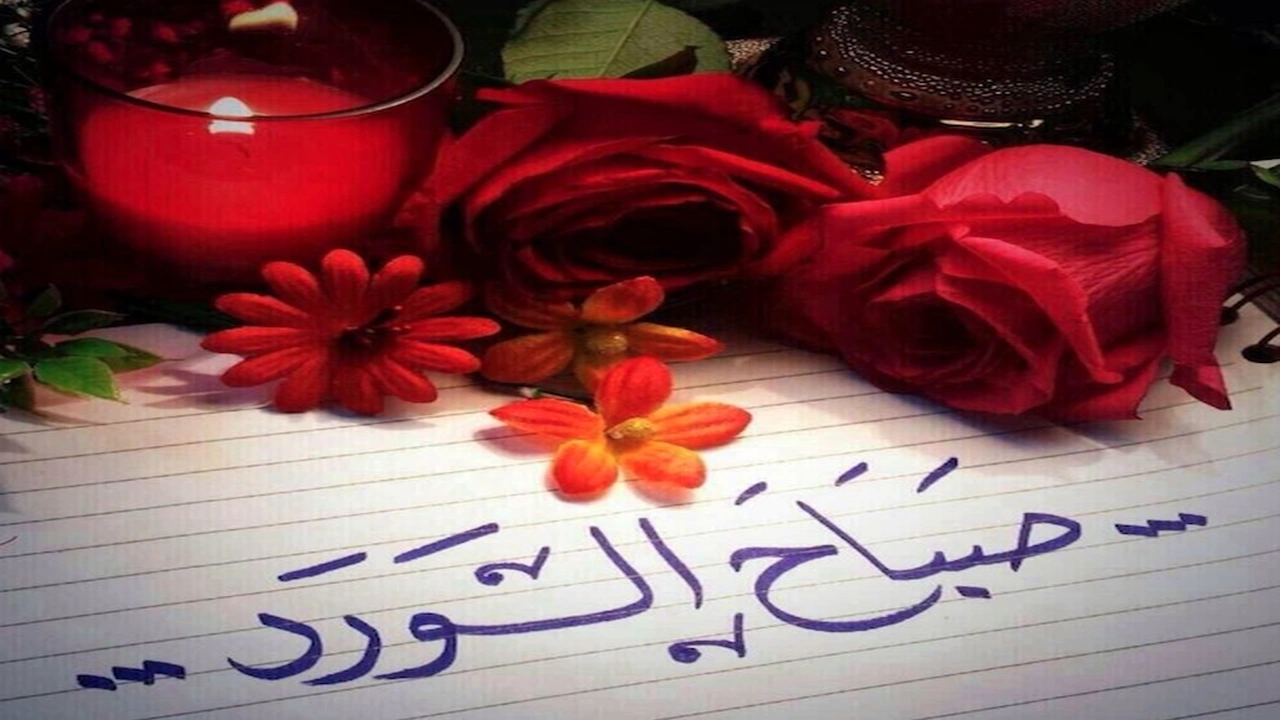 ... صَبَاحَ الوَردَ ...